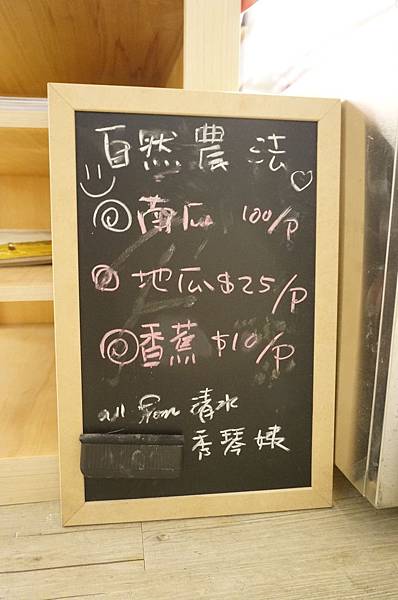 自然農法
南瓜 100/P
地瓜 $25/P
香蕉 $10/P
all from 清水
秀琴姨